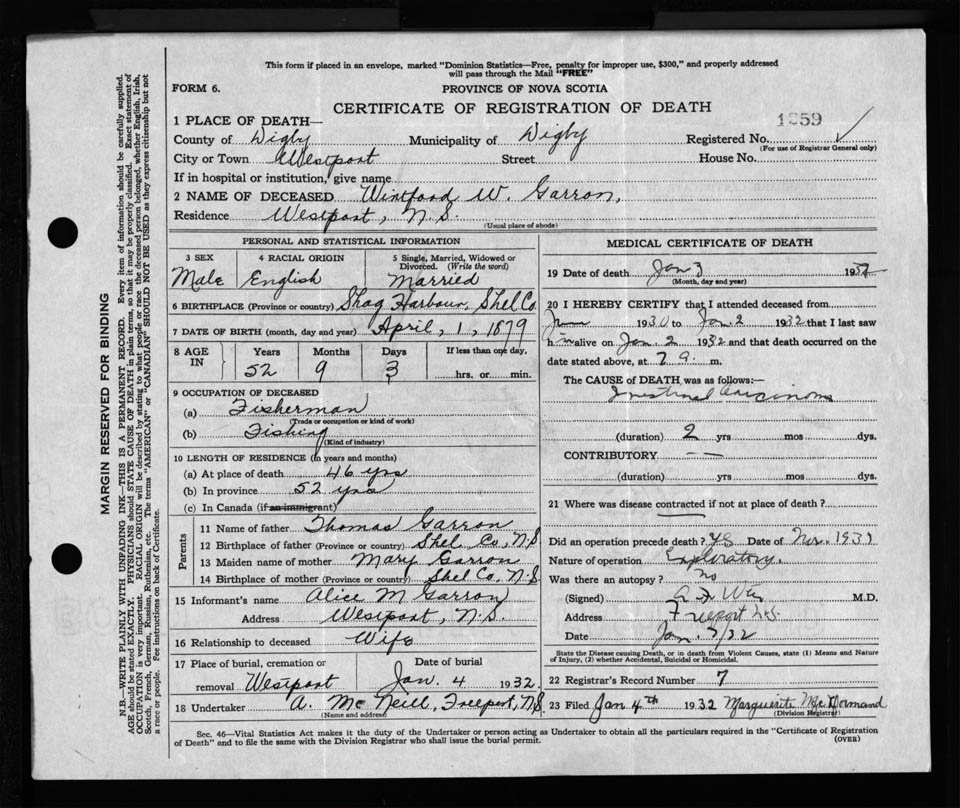 This form if placed in an envelope, marked "Dominion Statistics—Free, penalty for improper use, $300," and properly addressed
will pass through the Mail "FREE"
FORM 6. PROVINCE OF NOVA SCOTIA
CERTIFICATE OF REGISTRATION OF DEATH
1 PLACE OF DEATH— 1259
County of Digby Municipality of Digby Registered No.
(For use of Registrar General only)
City or Town Westport Street House No.
If in hospital or institution, give name
2 NAME OF DECEASED W. Garron,
Residence Westport, N.S.
(Usual place of abode)
PERSONAL AND STATISTICAL INFORMATION
3 SEX 4 RACIAL ORIGIN 5 Single, Married, Widowed or
Divorced. (Write the word)
Male English Married
6 BIRTHPLACE (Province or country) Shag Harbour, Shel Co.
7 DATE OF BIRTH (month, day and year) April, 1, 1879
8 AGE IN Years Months Days If less than one day,
52 9 3 hrs. or min.
9 OCCUPATION OF DECEASED
(a) Fisherman
(Trade or occupation or kind of work)
(b) Fishing
(Kind of industry)
10 LENGTH OF RESIDENCE (in years and months)
(a) At place of death 46 yrs
(b) In province 52 yrs
(c) In Canada (if an immigrant)
Parents
11 Name of father Thomas Garron
12 Birthplace of father (Province or country) Shel Co, N.S
13 Maiden name of mother Mary Garron
14 Birthplace of mother (Province or country) Shel Co, N.S.
15 Informant's name Alice M Garron
Address Westport, N.S.
16 Relationship to deceased Wife
17 Place of burial, cremation or Date of burial
removal Westport Jan. 4 1932
18 Undertaker A. McNeill, Freeport, N.S
(Name and address)
MEDICAL CERTIFICATE OF DEATH
19 Date of death Jan 3 1932
(Month, day and year)
20 I HEREBY CERTIFY that I attended deceased from
1930 to Jan 2 1932 that I last saw
him alive on Jan. 2 1932 and that death occurred on the
date stated above, at 7 a. m.
The CAUSE OF DEATH was as follows:—
Intestinal Carcinoma
(duration) 2 yrs mos dys.
CONTRIBUTORY — —
(duration) yrs mos dys.
21 Where was disease contracted if not at place of death?
Did an operation precede death? Date of Nov. 1931
Nature of operation Exploratory.
Was there an autopsy? no
(Signed) M.D.
Address Freeport N.S.
Date Jan. /32
State the Disease causing Death, or in death from Violent Causes, state (1) Means and Nature
of Injury, (2) whether Accidental, Suicidal or Homicidal.
22 Registrar's Record Number 7
23 Filed Jan 4th 1932 Marguerite McDormand
(Division Registrar)
Sec. 46—Vital Statistics Act makes it the duty of the Undertaker or person acting as Undertaker to obtain all the particulars required in the "Certificate of Registration
of Death" and to file the same with the Division Registrar who shall issue the burial permit.
(OVER)
MARGIN RESERVED FOR BINDING
N.B.—WRITE PLAINLY WITH UNFADING INK—THIS IS A PERMANENT RECORD. Every item of information should be carefully supplied.
AGE should be stated EXACTLY. PHYSICIANS should STATE CAUSE OF DEATH in plain terms, so that it may be properly classified. Exact statement of
OCCUPATION is very important. RACIAL ORIGIN will be described by stating to what people or race the deceased person belonged, whether English, Irish,
Scotch, French, German, Russian, Ruthenian, etc. The terms "AMERICAN" or "CANADIAN" SHOULD NOT BE USED as they express citizenship but not
a race or people. Fee instructions on back of Certificate.